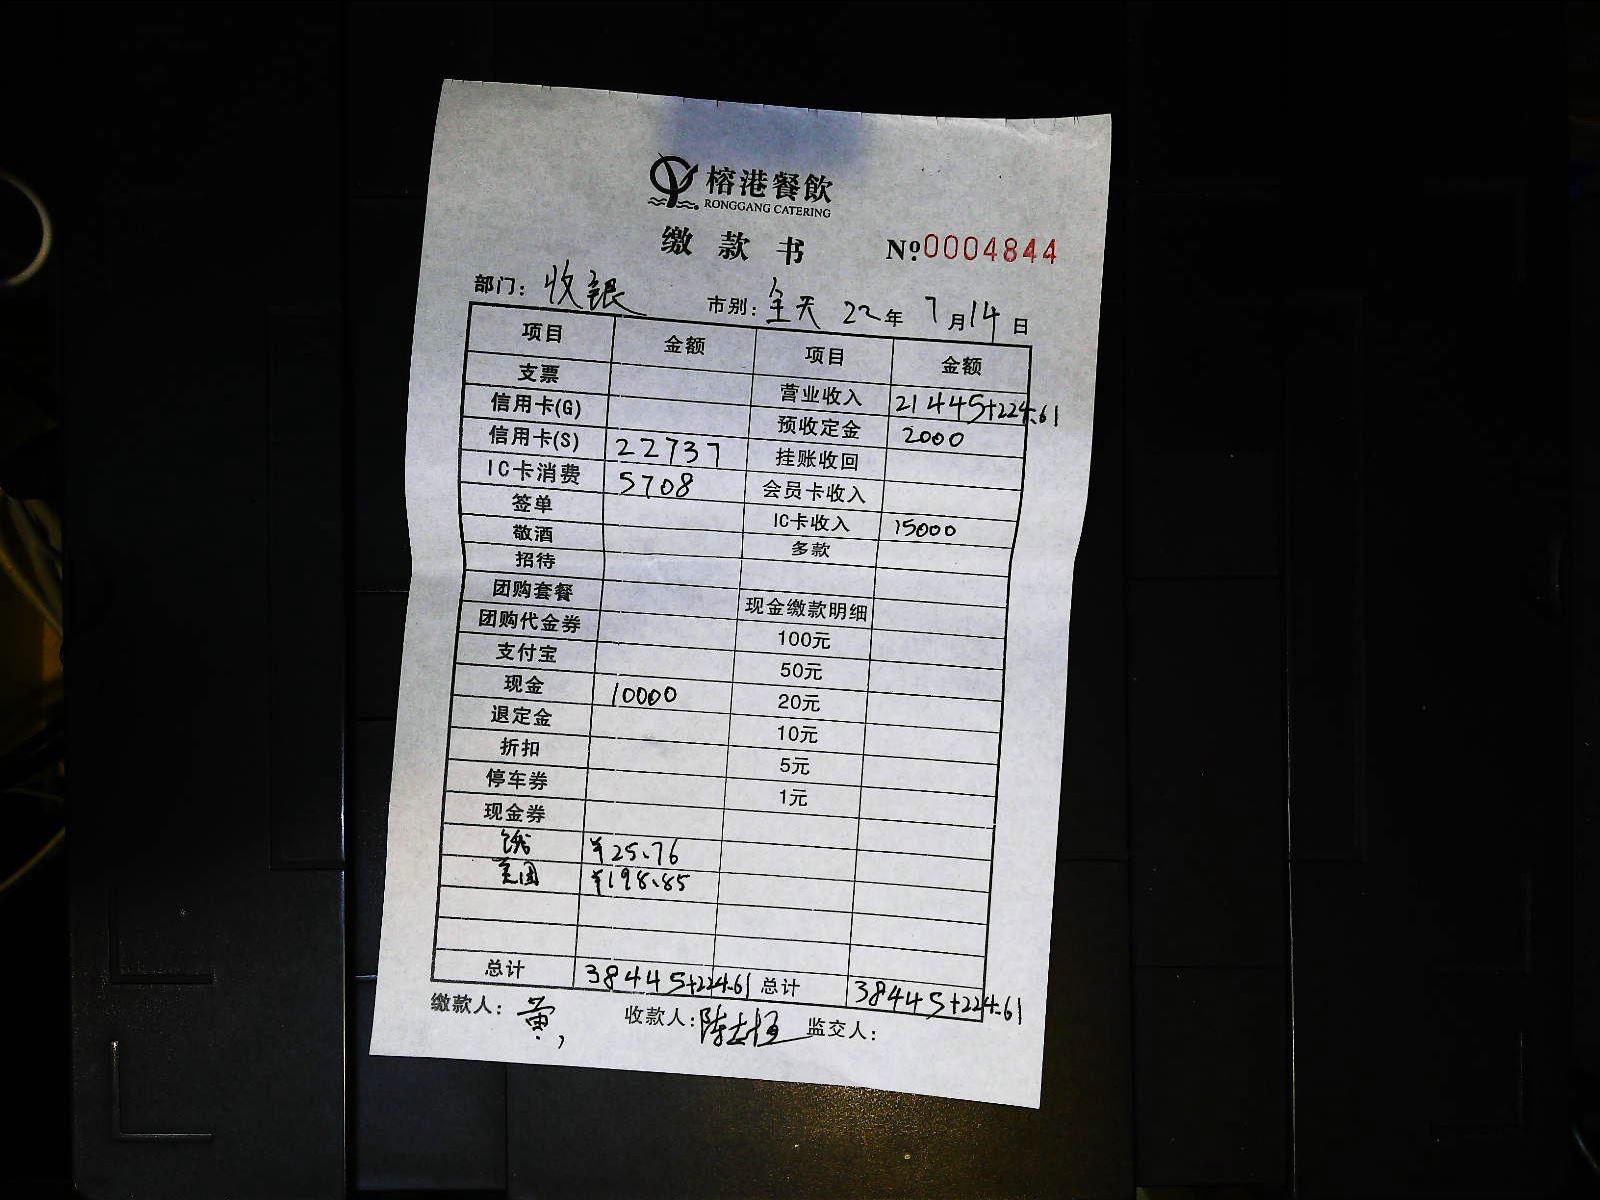 榕港餐飲
RONGGANG CATERING
缴款书 №0004844
部门：收银 市别：全天 22年7月14日
项目 金额 项目 金额
支票 营业收入 21445+224.61
信用卡(G) 预收定金 2000
信用卡(S) 22737 挂账收回
IC卡消费 5708 会员卡收入
签单 IC卡收入 15000
敬酒 多款
招待
团购套餐 现金缴款明细
团购代金券 100元
支付宝 50元
现金 10000 20元
退定金 10元
折扣 5元
停车券 1元
现金券
饿 ¥25.76
美团 ¥198.85
总计 38445+224.61 总计 38445+224.61
缴款人：黄, 收款人：陈 监交人：